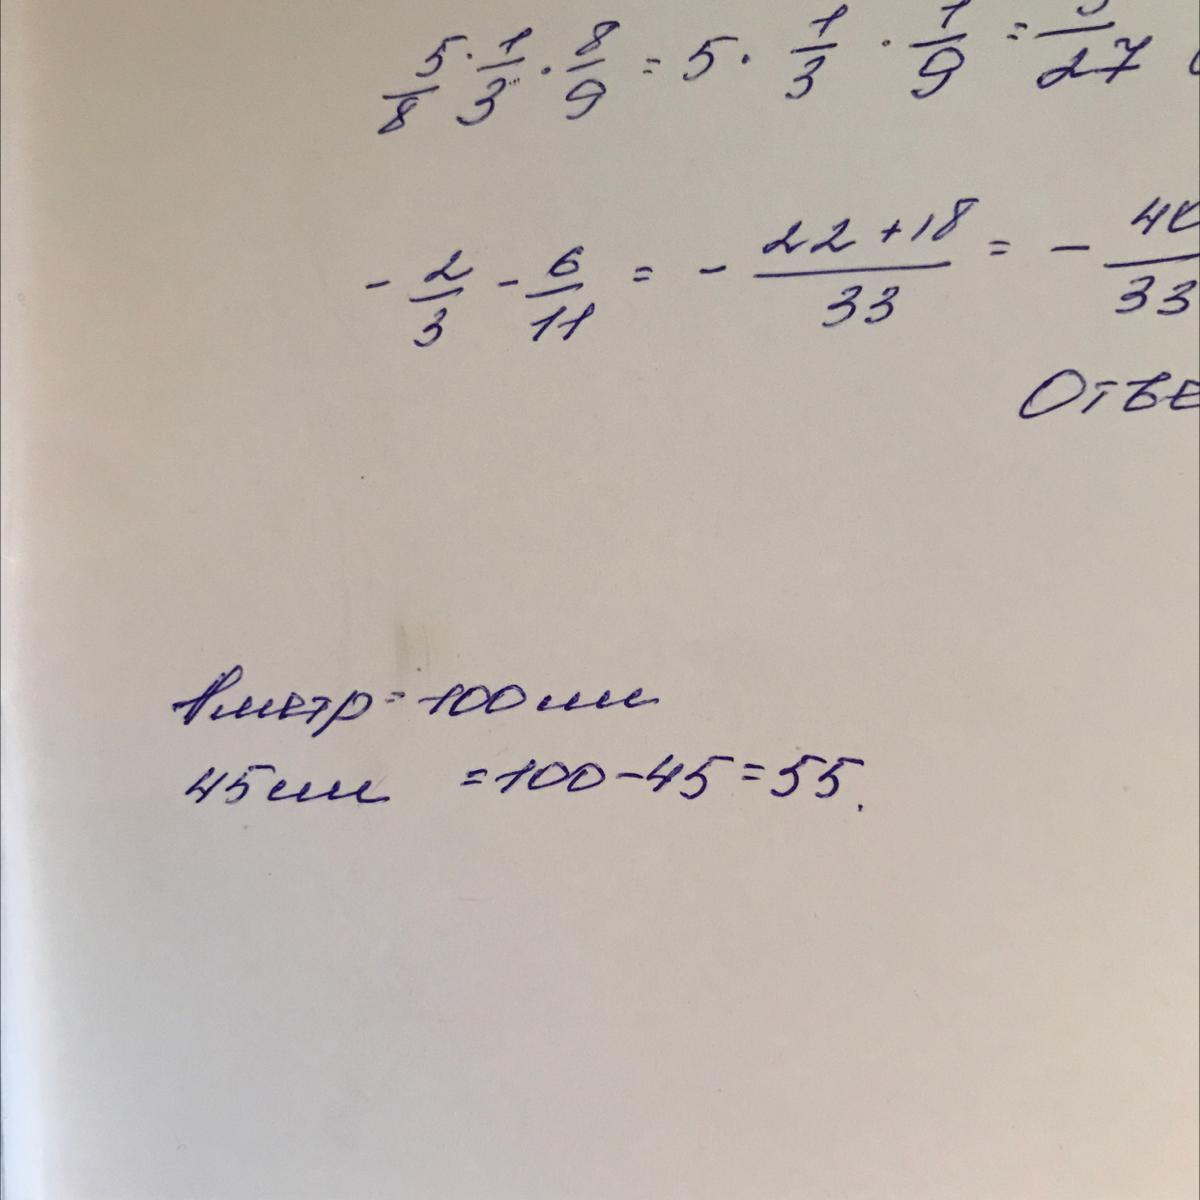 5/8 · 1/3 · 8/9 = 5 · 1/3 · 1/9 = 5/27
- 2/3 - 6/11 = - (22+18)/33 = - 40/33
Отве
1 метр = 100 см
45 см = 100 - 45 = 55.